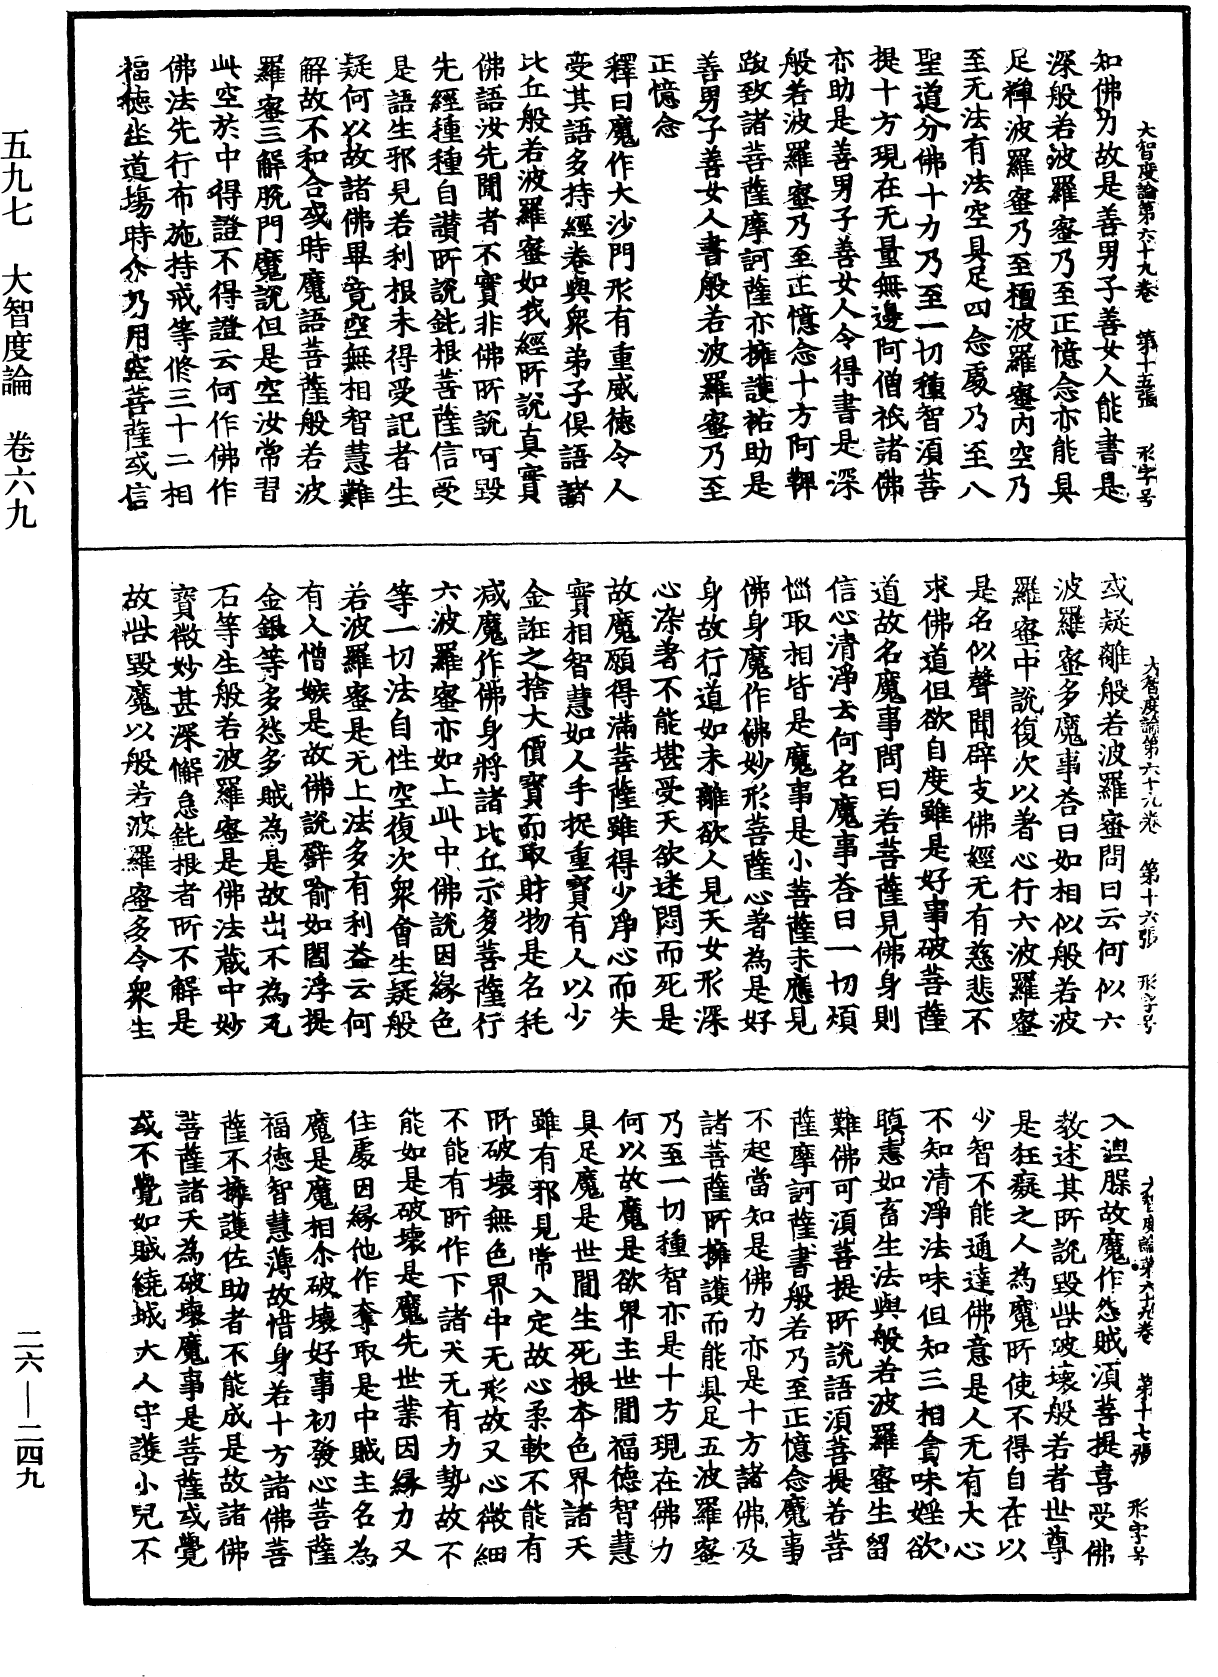 大智度論第六十九卷　第十五張　形字号
知佛力故是善男子善女人能書是
深般若波羅蜜乃至正憶念亦能具
足禪波羅蜜乃至檀波羅蜜內空乃
至无法有法空具足四念處乃至八
聖道分佛十力乃至一切種智須菩
提十方現在无量無邊阿僧祇諸佛
亦助是善男子善女人令得書是深
般若波羅蜜乃至正憶念十方阿鞞
跋致諸菩薩摩訶薩亦擁護祐助是
善男子善女人書般若波羅蜜乃至
正憶念
釋曰魔作大沙門形有重威德令人
受其語多持經卷與眾弟子俱語諸
比丘般若波羅蜜如我經所說真實
佛語汝先聞者不實非佛所說呵毀
先經種種自讃所說鈍根菩薩信受
是語生邪見若利根未得受記者生
疑何以故諸佛畢竟空無相智慧難
解故不和合或時魔語菩薩般若波
羅蜜三解脫門魔說但是空汝常習
此空於中得證不得證云何作佛作
佛法先行布施持戒等修三十二相
福德坐道場時尒乃用空菩薩或信
大智度論第六十九卷　第十六張　形字号
或疑離般若波羅蜜問曰云何似六
波羅蜜多魔事荅曰如相似般若波
羅蜜中說復次以著心行六波羅蜜
是名似聲聞辟支佛經无有慈悲不
求佛道但欲自度雖是好事破菩薩
道故名魔事問曰若菩薩見佛身則
信心清淨云何名魔事荅曰一切煩
惱取相皆是魔事是小菩薩未應見
佛身魔作佛妙形菩薩心著為是好
身故行道如未離欲人見天女形深
心染著不能堪受天欲迷悶而死是
故魔願得滿菩薩雖得少淨心而失
實相智慧如人手捉重寶有人以少
金誑之捨大價寶而取財物是名秏
减魔作佛身將諸比丘示多菩薩行
六波羅蜜亦如上此中佛說因緣色
等一切法自性空復次眾會生疑般
若波羅蜜是无上法多有利益云何
有人憎嫉是故佛說譬喻如閻浮提
金銀等多怨多賊為是故出不為瓦
石等生般若波羅蜜是佛法蔵中妙
寶微妙甚深懈怠鈍根者所不解是
故此毀魔以般若波羅蜜多令眾生
大智度論第六十九卷　第十七張　形字号
入涅槃故魔作怨賊須菩提喜受佛
教述其所說毀呰破壞般若者世尊
是狂癡之人為魔所使不得自在以
少智不能通達佛意是人无有大心
不知清淨法味但知三相貪味婬欲
瞋恚如畜生法與般若波羅蜜生留
難佛可須菩提所說語須菩提若菩
薩摩訶薩書般若乃至正憶念魔事
不起當知是佛力亦是十方諸佛及
諸菩薩所擁護而能具足五波羅蜜
乃至一切種智亦是十方現在佛力
何以故魔是欲界主世間福德智慧
具足魔是世間生死根本色界諸天
雖有邪見常入定故心柔軟不能有
所破壞無色界中无形故又心微細
不能有所作下諸天无有力勢故不
能如是破壞是魔先世業因緣力又
住處因緣他作奪取是中賊主名為
魔是魔相尒破壞好事初發心菩薩
福德智慧薄故惜身若十方諸佛菩
薩不擁護佐助者不能成是故諸佛
菩薩諸天為破壞魔事是菩薩或覺
或不覺如賊繞城大人守護小兒不
五九七　大智度論　卷六九　二六—二四九